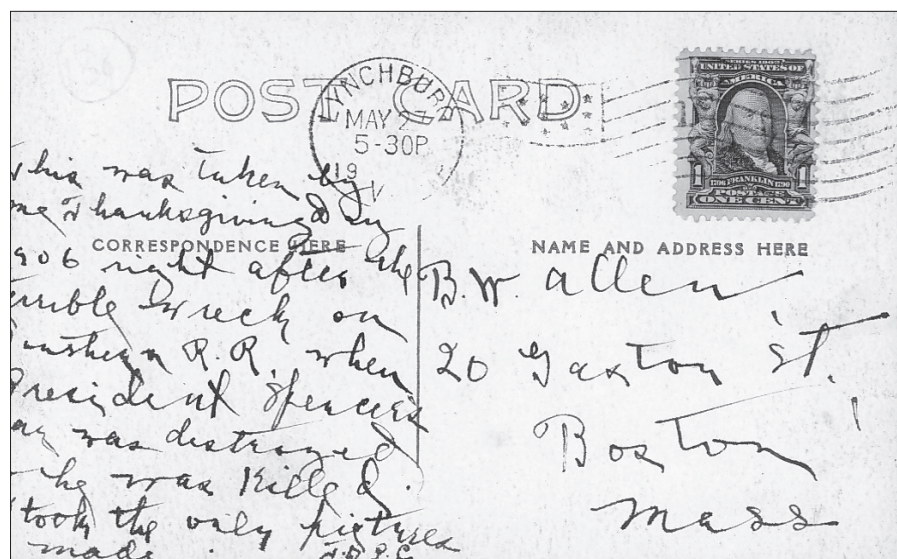 POST CARD
LYNCHBURG
MAY 2
5-30P
19
SERIES 1902
UNITED STATES OF
AMERICA
1 1
FRANKLIN
POSTAGE
ONE CENT
CORRESPONDENCE HERE
his was taken by
me Thanksgiving Day
906 right after the
errible wreck on
Southern R.R. when
President Spencer's
car was distroyed
he was Killed.
I took the only pictures
made.
NAME AND ADDRESS HERE
B. W. Allen
20 Gaston St.
Boston
Mass